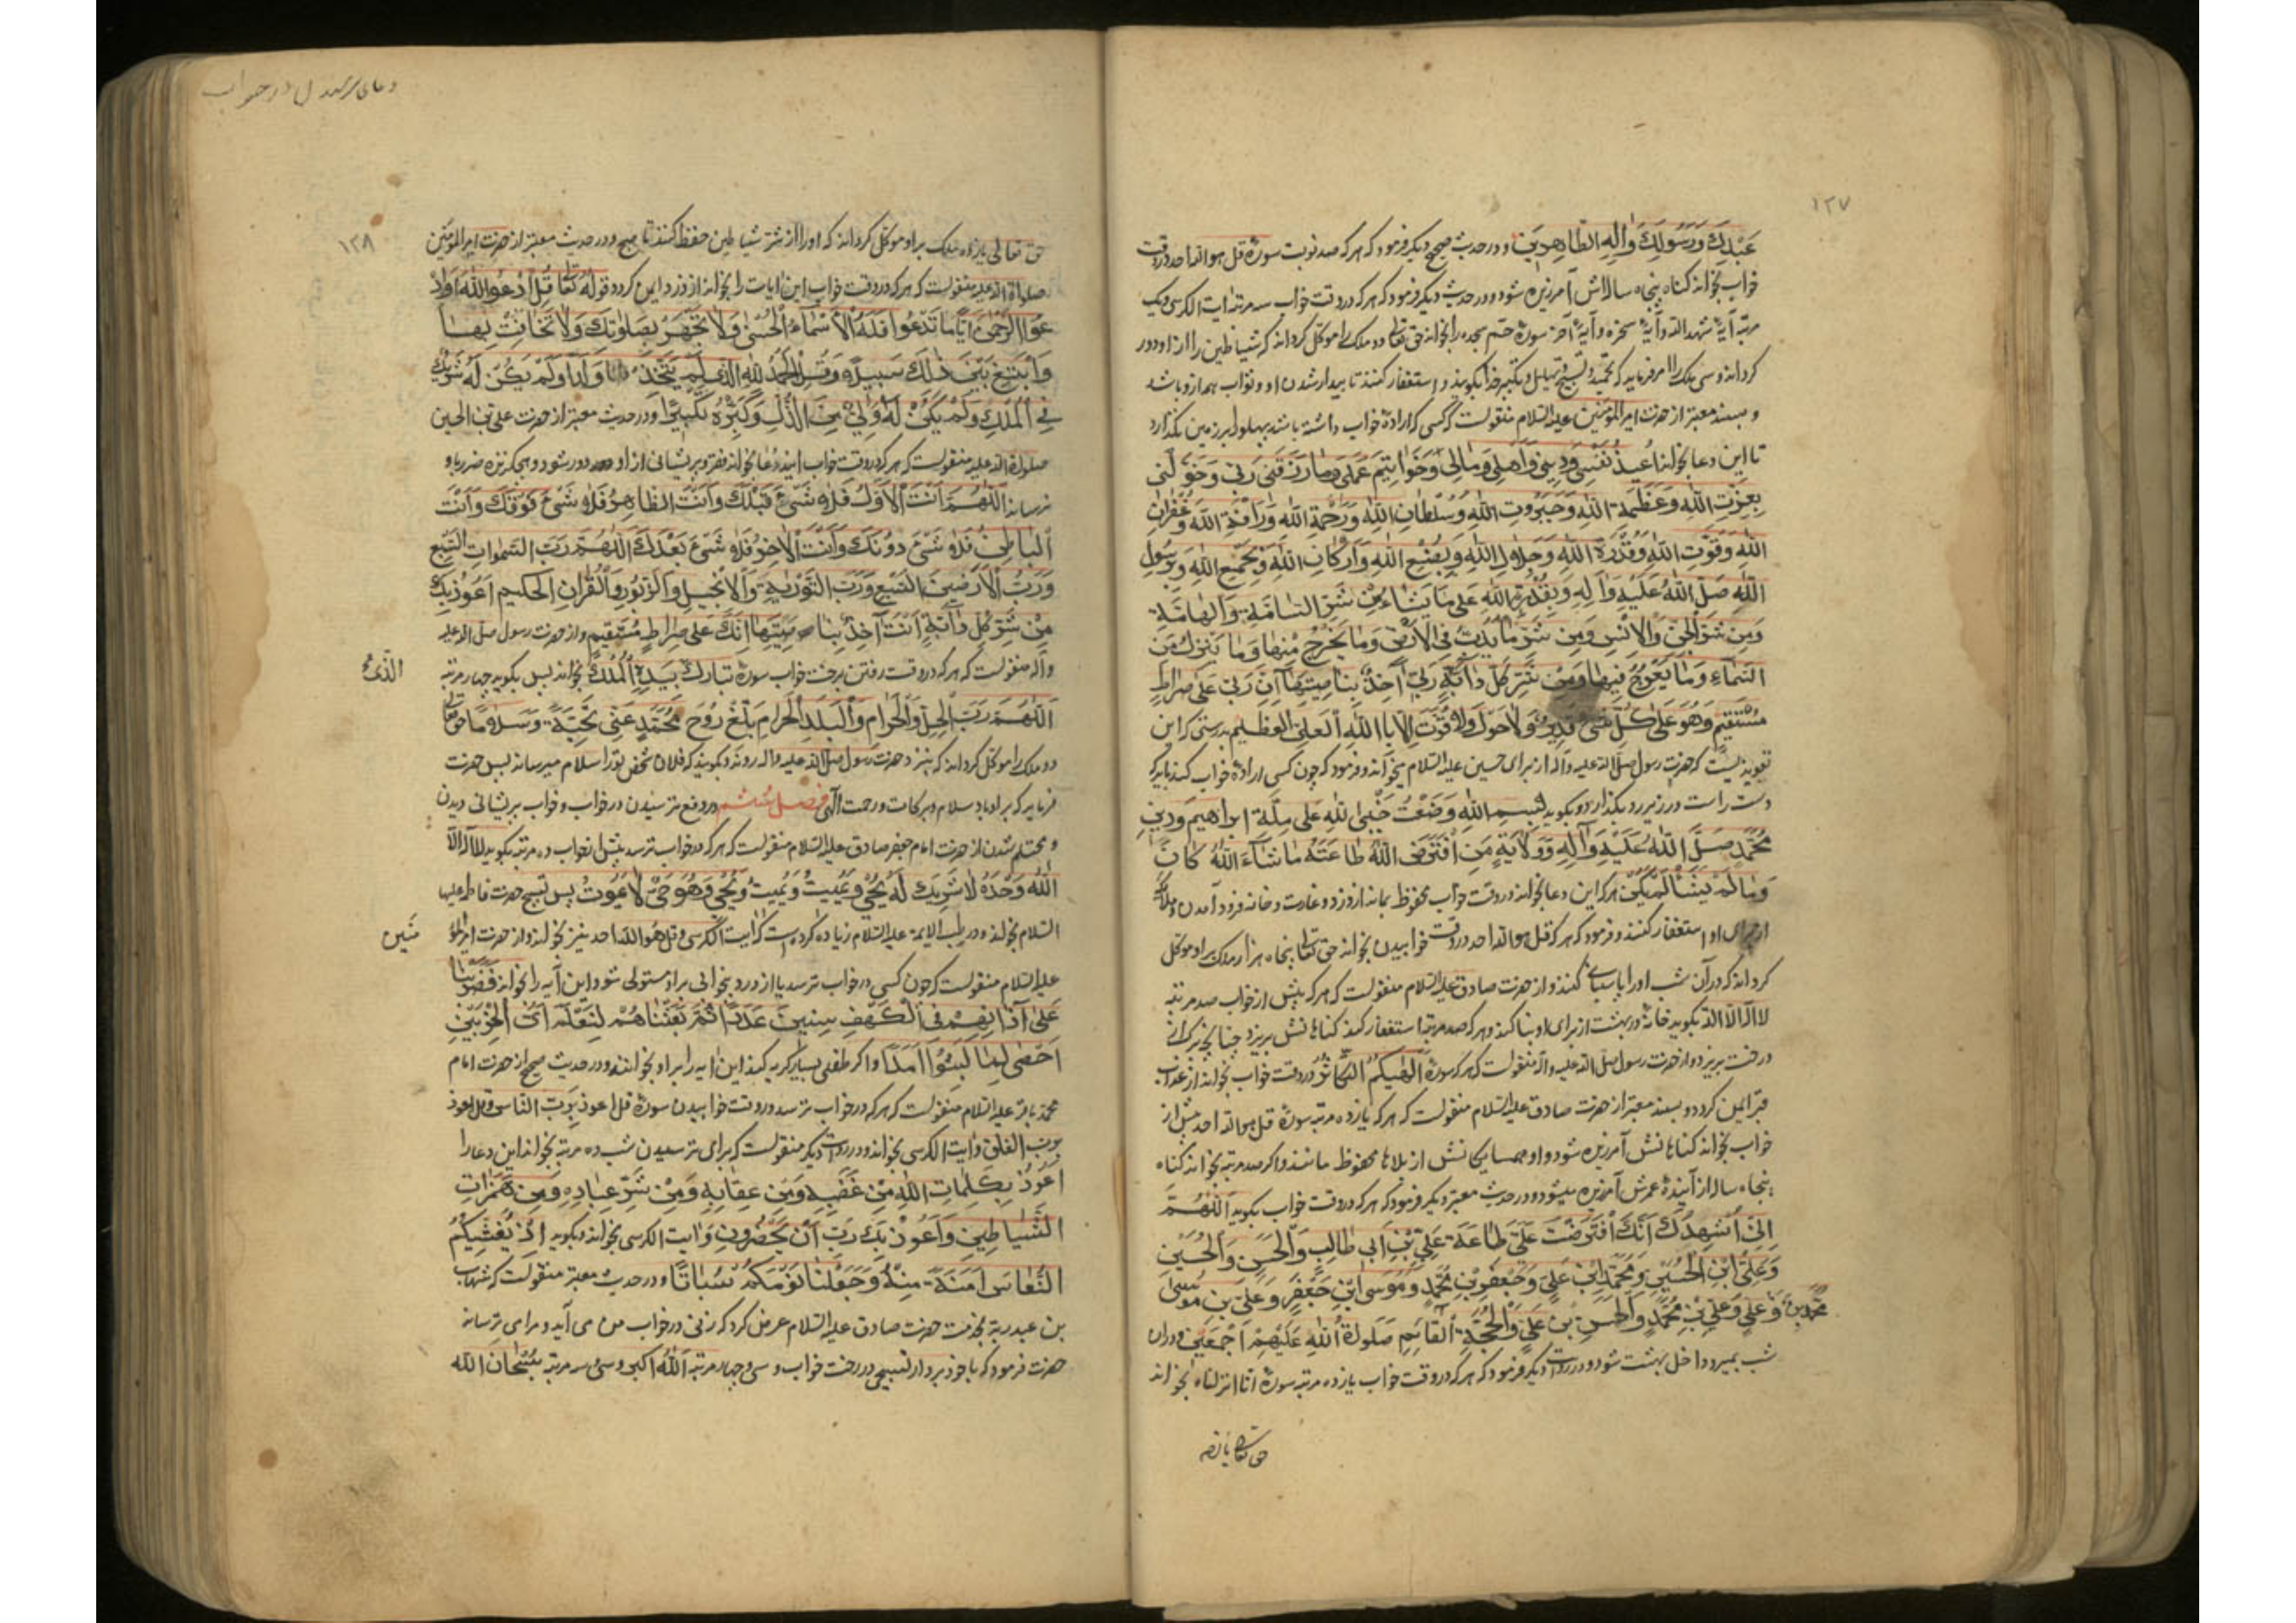 ١٢٧
عَبْدِكَ وَرَسُولِكَ وَآلِهِ الطَّاهِرِينَ و در حدیث صحیح دیگر فرمود که هر که صد نوبت سورهٔ قل هو الله احد در وقت
خواب بخواند گناه پنجاه ساله‌اش آمرزیده شود و در حدیث دیگر فرمود که هر که در وقت خواب سه مرتبه ایت الکرسی و یک
مرتبه آیهٔ شهد الله و آیهٔ سخره و آیهٔ آخر سورهٔ حم سجده را بخواند حق تعالی دو ملک را موکل گرداند که شیاطین را از او دور
گردانند و سی ملک را امر فرماید که تحمید و تسبیح و تهلیل و تکبیر خدا بگویند و استغفار کنند تا بیدار شدن او و ثواب همه از او باشد
و بسند معتبر از حضرت امیر المؤمنین علیه السلام منقولست که کسی که ارادهٔ خواب داشته باشد پهلو را بر زمین نگذارد
تا این دعا بخواند اُعِیذُ نَفْسِی وَدِینِی وَاَهْلِی وَمَالِی وَخَوَاتِیمَ عَمَلِی وَمَا رَزَقَنِی رَبِّی وَخَوَّلَنِی
بِعِزَّتِ اللهِ وَعَظَمَةِ اللهِ وَجَبَرُوتِ اللهِ وَسُلْطَانِ اللهِ وَرَحْمَةِ اللهِ وَرَافَةِ اللهِ وَغُفْرَانِ
اللهِ وَقُوَّتِ اللهِ وَقُدْرَةِ اللهِ وَجَلَالِ اللهِ وَبِصُنْعِ اللهِ وَاَرْكَانِ اللهِ وَبِجَمْعِ اللهِ وَبِرَسُولِ
اللهِ صَلَّى اللهُ عَلَيْهِ وَآلِهِ وَبِقُدْرَةِ اللهِ عَلَى مَا يَشَاءُ مِنْ شَرِّ السَّامَّةِ وَالْهَامَّةِ
وَمِنْ شَرِّ الْجِنِّ وَالْاِنْسِ وَمِنْ شَرِّ مَا يَدِبُّ فِي الْاَرْضِ وَمَا يَخْرُجُ مِنْهَا وَمَا يَنْزِلُ مِنَ
السَّمَاءِ وَمَا يَعْرُجُ فِيهَا وَمِنْ شَرِّ كُلِّ دَابَّةٍ رَبِّي آخِذٌ بِنَاصِيَتِهَا اِنَّ رَبِّي عَلَى صِرَاطٍ
مُسْتَقِيمٍ وَهُوَ عَلَى كُلِّ شَيْءٍ قَدِيرٌ وَلَا حَوْلَ وَلَا قُوَّتَ اِلَّا بِاللهِ الْعَلِيِّ الْعَظِيمِ بدرستی که این
تعویذیست که حضرت رسول صلی الله علیه و آله از برای حسین علیه السلام میخواند و فرمود که چون کسی ارادهٔ خواب کند باید که
دست راست در زیر رو بگذارد و بگوید بِسْمِ اللهِ وَضَعْتُ جَنْبِي لِلهِ عَلَى مِلَّةِ اِبْرَاهِيمَ وَدِينِ
مُحَمَّدٍ صَلَّى اللهُ عَلَيْهِ وَآلِهِ وَوِلَايَةِ مَنِ افْتَرَضَ اللهُ طَاعَتَهُ مَا شَاءَ اللهُ كَانَ
وَمَا لَمْ يَشَأْ لَمْ يَكُنْ هر که این دعا بخواند در وقت خواب محفوظ بماند از دزد و غارت و خانه فرود آمدن و ملائکه
از برای او استغفار کنند و فرمود که هر که قل هو الله احد در وقت خوابیدن بخواند حق تعالی پنجاه هزار ملک بر او موکل
گرداند که در آن شب او را پاسبانی کنند و از حضرت صادق علیه السلام منقولست که هر که پیش از خواب صد مرتبه
لا اله الا الله بگوید خانهٔ در بهشت از برای او بنا کنند و هر که صد مرتبه استغفار کند گناهانش بریزد چنانچه برگ از
درخت بریزد و از حضرت رسول صلی الله علیه و آله منقولست که هر که سورهٔ اَلْهٰیكُمُ التَّكَاثُرُ در وقت خواب بخواند از عذاب
قبر ایمن گردد و بسند معتبر از حضرت صادق علیه السلام منقولست که هر که یازده مرتبه سورهٔ قل هو الله احد پیش از
خواب بخواند گناهانش آمرزیده شود و او همسایگانش از بلاها محفوظ مانند و اگر صد مرتبه بخواند گناه
پنجاه ساله از آیندهٔ عمرش آمرزیده میشود و در حدیث معتبر دیگر فرمود که هر که در وقت خواب بگوید اَللّٰهُمَّ
اِنِّي اُشْهِدُكَ اَنَّكَ افْتَرَضْتَ عَلَيَّ طَاعَةَ عَلِيِّ بْنِ اَبِي طَالِبٍ وَالْحَسَنِ وَالْحُسَيْنِ
وَعَلِيِّ ابْنِ الْحُسَيْنِ وَمُحَمَّدِ ابْنِ عَلِيٍّ وَجَعْفَرِ بْنِ مُحَمَّدٍ وَمُوسَى ابْنِ جَعْفَرٍ وَعَلِيِّ بْنِ مُوسَى
وَ مُحَمَّدِ بْنِ عَلِيٍّ وَعَلِيِّ بْنِ مُحَمَّدٍ وَالْحَسَنِ بْنِ عَلِيٍّ وَالْحُجَّةِ الْقَائِمِ صَلَوٰةُ اللهِ عَلَيْهِمْ اَجْمَعِينَ و در ان
شب بمیرد داخل بهشت شود و در روایت دیگر فرمود که هر که در وقت خواب یازده مرتبه سورهٔ انا انزلناه بخواند
حق تعالی یازده
دعای در خواب
١٢٨
حق تعالی یازده ملک بر او موکل گرداند که او را از شر شیاطین حفظ کنند تا صبح و در حدیث معتبر از حضرت امیر المؤمنین
صلواة الله علیه منقولست که هر که در وقت خواب این ایات را بخواند از دزد ایمن گردد قوله تعالی قُلِ ادْعُوا اللهَ اَوِ ادْ
عُوا الرَّحْمٰنَ اَيًّا مَا تَدْعُوا فَلَهُ الْاَسْمَاءُ الْحُسْنٰى وَلَا تَجْهَرْ بِصَلٰوتِكَ وَلَا تُخَافِتْ بِهَا
وَابْتَغِ بَيْنَ ذٰلِكَ سَبِيلًا وَقُلِ الْحَمْدُ لِلهِ الَّذِي لَمْ يَتَّخِذْ وَلَدًا وَلَمْ يَكُنْ لَهُ شَرِيكٌ
فِي الْمُلْكِ وَلَمْ يَكُنْ لَهُ وَلِيٌّ مِنَ الذُّلِّ وَكَبِّرْهُ تَكْبِيرًا و در حدیث معتبر از حضرت علی بن الحسین
صلوة الله علیه منقولست که هر که در وقت خواب این دعا بخواند فقر و پریشانی از او دور شود و هیچ گزنده ضرر باو
نرساند اَللّٰهُمَّ اَنْتَ الْاَوَّلُ فَلَا شَيْءَ قَبْلَكَ وَاَنْتَ الظَّاهِرُ فَلَا شَيْءَ فَوْقَكَ وَاَنْتَ
الْبَاطِنُ فَلَا شَيْءَ دُونَكَ وَاَنْتَ الْاٰخِرُ فَلَا شَيْءَ بَعْدَكَ اَللّٰهُمَّ رَبَّ السَّمٰوَاتِ السَّبْعِ
وَرَبَّ الْاَرَضِينَ السَّبْعِ وَرَبَّ التَّوْرٰيةِ وَالْاِنْجِيلِ وَالزَّبُورِ وَالْقُرْاٰنِ الْحَكِيمِ اَعُوذُ بِكَ
مِنْ شَرِّ كُلِّ دَابَّةٍ اَنْتَ آخِذٌ بِنَاصِيَتِهَا اِنَّكَ عَلَى صِرَاطٍ مُسْتَقِيمٍ و از حضرت رسول صلی الله علیه
و آله منقولست که هر که در وقت رفتن برخت خواب سورهٔ تبارك الَّذِي بِيَدِهِ الْمُلْكُ بخواند پس بگوید چهار مرتبه
اَللّٰهُمَّ رَبَّ الْحِلِّ وَالْحَرَامِ وَالْبَلَدِ الْحَرَامِ بَلِّغْ رُوحَ مُحَمَّدٍ عَنِّي تَحِيَّةً وَسَلَامًا حق تعالی
دو ملک را موکل گرداند که بنزد حضرت رسول صلی الله علیه و اله روند و بگویند که فلان شخص تو را سلام میرساند پس حضرت
فرماید که بر او باد سلام و برکات و رحمت الهی فصل ششم در دفع ترسیدن در خواب و خواب پریشانی دیدن
و محتلم شدن از حضرت امام جعفر صادق علیه السلام منقولست که هر که در خواب ترسد پیش از خواب ده مرتبه بگوید لَا اِلٰهَ اِلَّا
اللهُ وَحْدَهُ لَا شَرِيكَ لَهُ يُحْيِي وَيُمِيتُ وَيُمِيتُ وَيُحْيِي وَهُوَ حَيٌّ لَا يَمُوتُ پس تسبیح حضرت فاطمه علیها
السلام بخواند و در طب الایمه علیه السلام زیاده کرده است که ایت الکرسی و قل هو الله احد نیز بخواند و از حضرت امیر المؤ
منین
علیه السلام منقولست که چون کسی در خواب ترسد یا از درد بیخوابی بر او مستولی شود این آیه را بخواند فَضَرَبْنَا
عَلَى اٰذَانِهِمْ فِي الْكَهْفِ سِنِينَ عَدَدًا ثُمَّ بَعَثْنَاهُمْ لِنَعْلَمَ اَيُّ الْحِزْبَيْنِ
اَحْصٰى لِمَا لَبِثُوا اَمَدًا و اگر طفلی بسیار گریه کند این ایه را بر او بخوانند و در حدیث صحیح از حضرت امام
محمد باقر علیه السلام منقولست که هر که در خواب ترسد در وقت خوابیدن سورهٔ قل اعوذ برب الناس و قل اعوذ
برب الفلق و ایت الکرسی بخواند و در روایت دیگر منقولست که برای ترسیدن شب ده مرتبه بخواند این دعا را
اَعُوذُ بِكَلِمَاتِ اللهِ مِنْ غَضَبِهِ وَمِنْ عِقَابِهِ وَمِنْ شَرِّ عِبَادِهِ وَمِنْ هَمَزَاتِ
الشَّيَاطِينِ وَاَعُوذُ بِكَ رَبِّ اَنْ يَحْضُرُونِ و ایت الکرسی بخواند و بگوید اِذْ يُغَشِّيكُمُ
النُّعَاسَ اَمَنَةً مِنْهُ وَجَعَلْنَا نَوْمَكُمْ سُبَاتًا و در حدیث معتبر منقولست که شهاب
بن عبدربه بخدمت حضرت صادق علیه السلام عرض کرد که زنی در خواب من می آید و مرا می ترساند
حضرت فرمود که با خود بردار تسبیحی در رخت خواب و سی و چهار مرتبه اَللهُ اَكْبَر و سی و سه مرتبه سُبْحَانَ الله